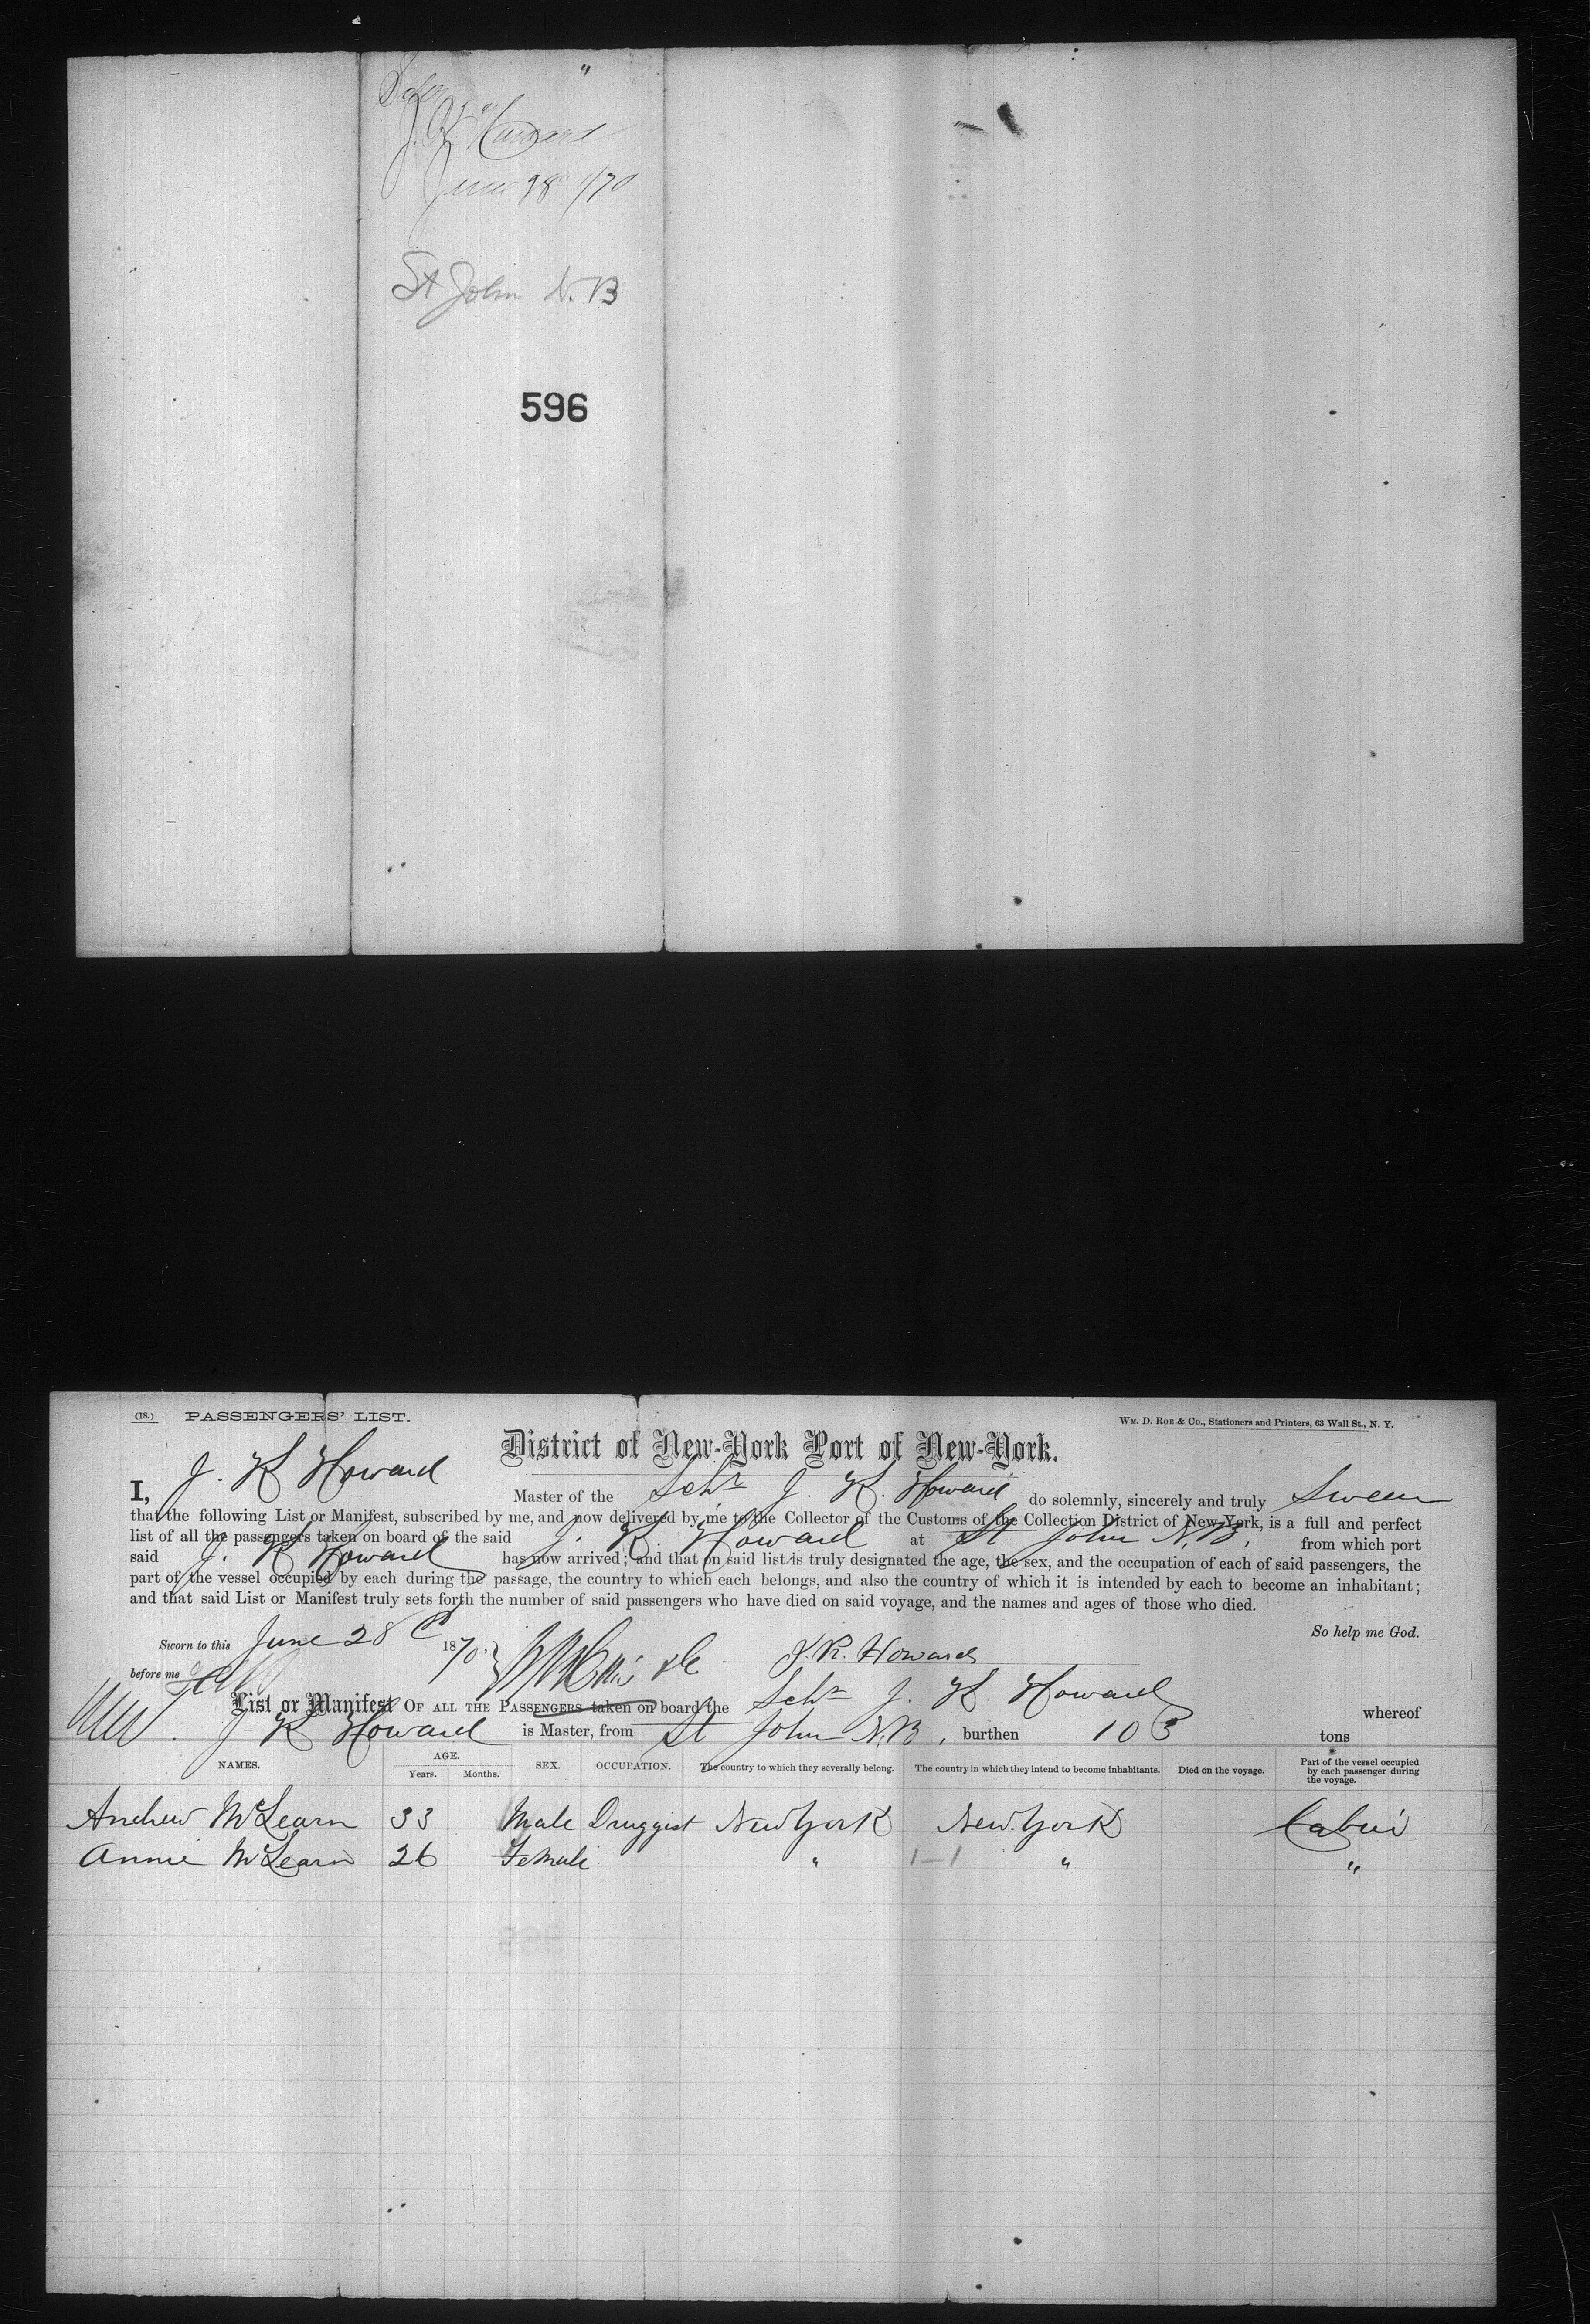 J. K. Howard
June 28th 1870
St John N.B
596
(18.) PASSENGERS' LIST.
WM. D. ROE & CO., Stationers and Printers, 63 Wall St., N. Y.
District of New-York Port of New-York.
I, J. K Howard Master of the Schr J. K. Howard do solemnly, sincerely and truly Swear
that the following List or Manifest, subscribed by me, and now delivered by me to the Collector of the Customs of the Collection District of New-York, is a full and perfect
list of all the passengers taken on board of the said J. K. Howard at St John N.B. from which port
said J. K Howard has now arrived; and that on said list is truly designated the age, the sex, and the occupation of each of said passengers, the
part of the vessel occupied by each during the passage, the country to which each belongs, and also the country of which it is intended by each to become an inhabitant;
and that said List or Manifest truly sets forth the number of said passengers who have died on said voyage, and the names and ages of those who died.
So help me God.
Sworn to this June 28th 1870. J. K. Howard
before me
List or Manifest OF ALL THE PASSENGERS taken on board the Schr J. K Howard whereof
J K Howard is Master, from St John N.B, burthen 103 tons
NAMES. AGE. Years. Months. SEX. OCCUPATION. The country to which they severally belong. The country in which they intend to become inhabitants. Died on the voyage. Part of the vessel occupied by each passenger during the voyage.
Andrew McLearn 33 Male Druggist New York New York Cabin
Annie McLearn 26 Female " 1-1 " "